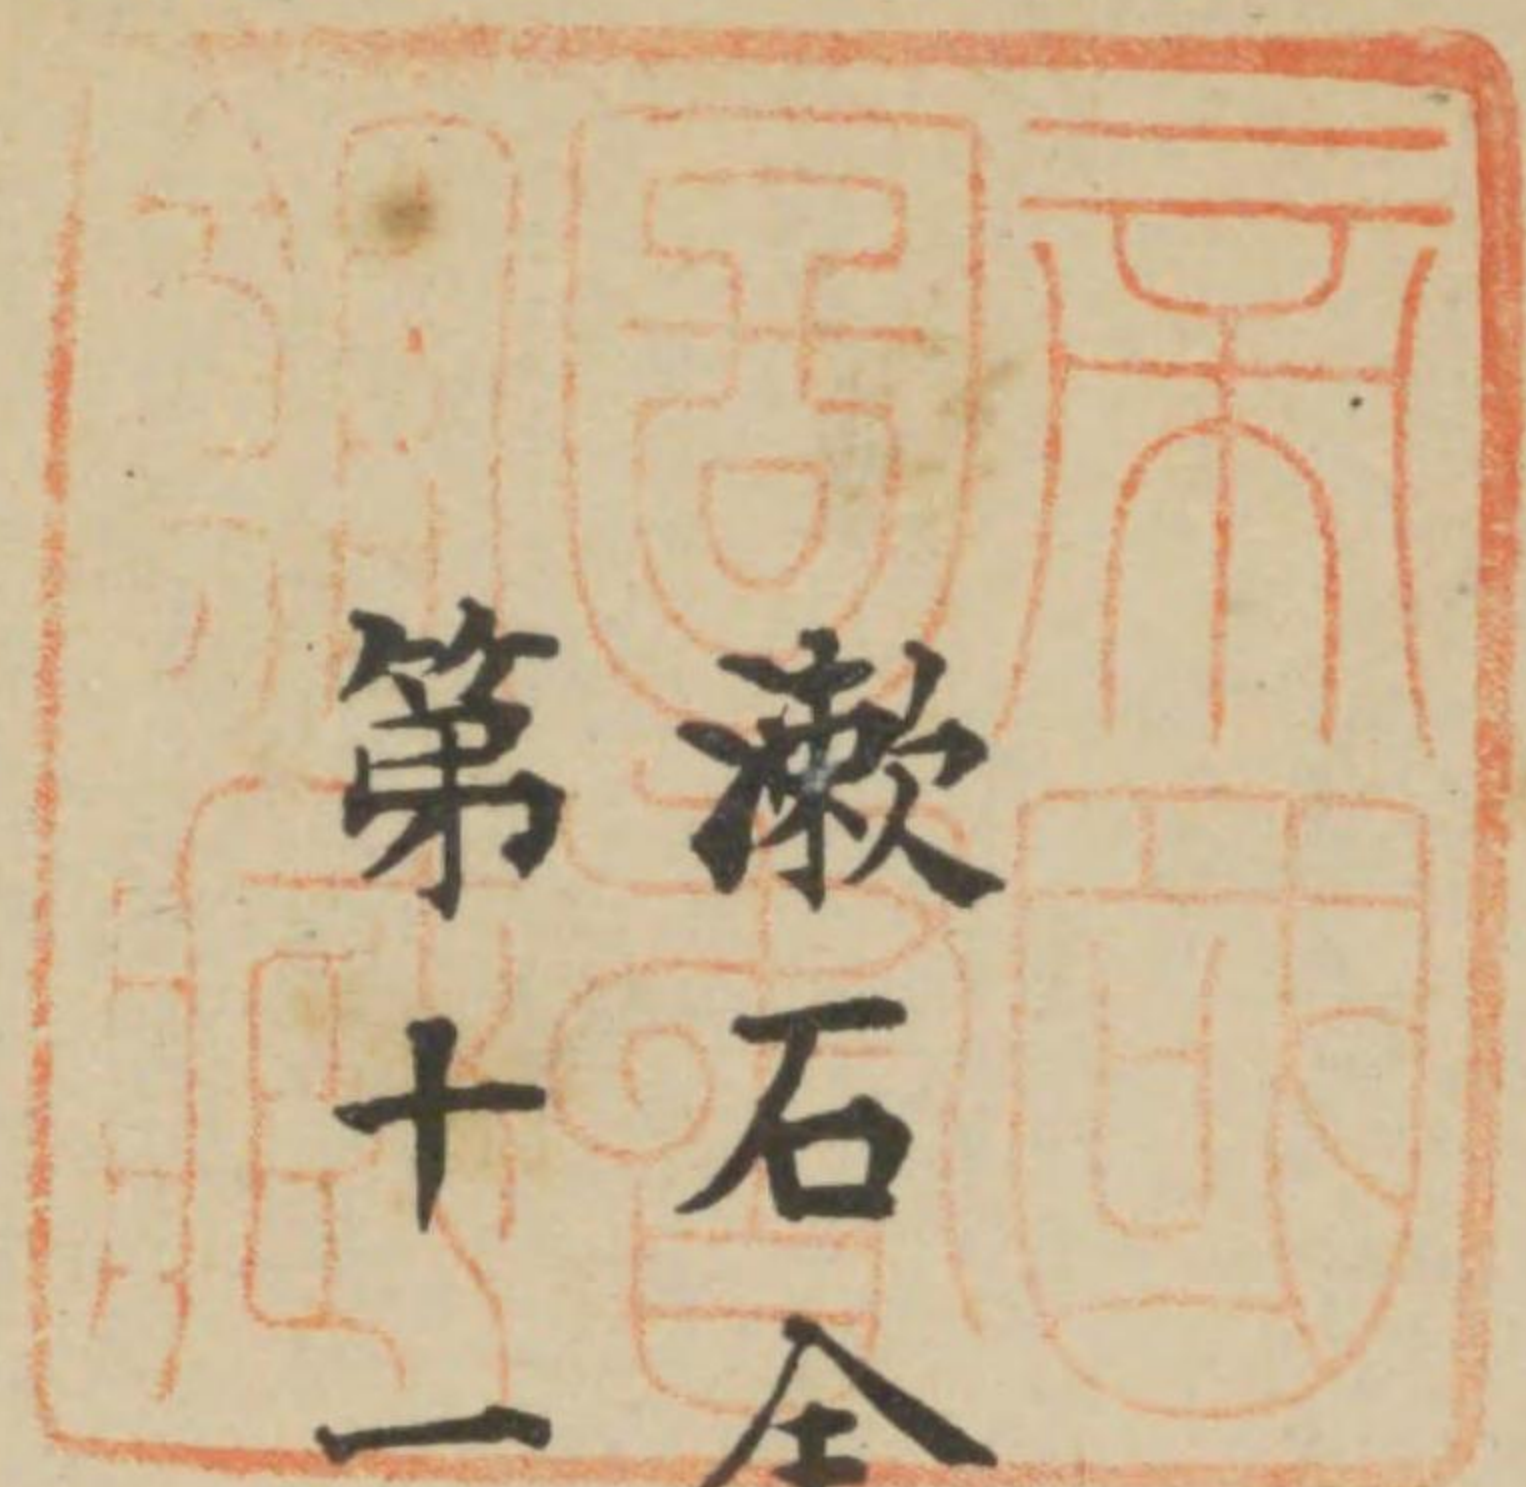 漱石全
第十一
帝國
圖書
館藏